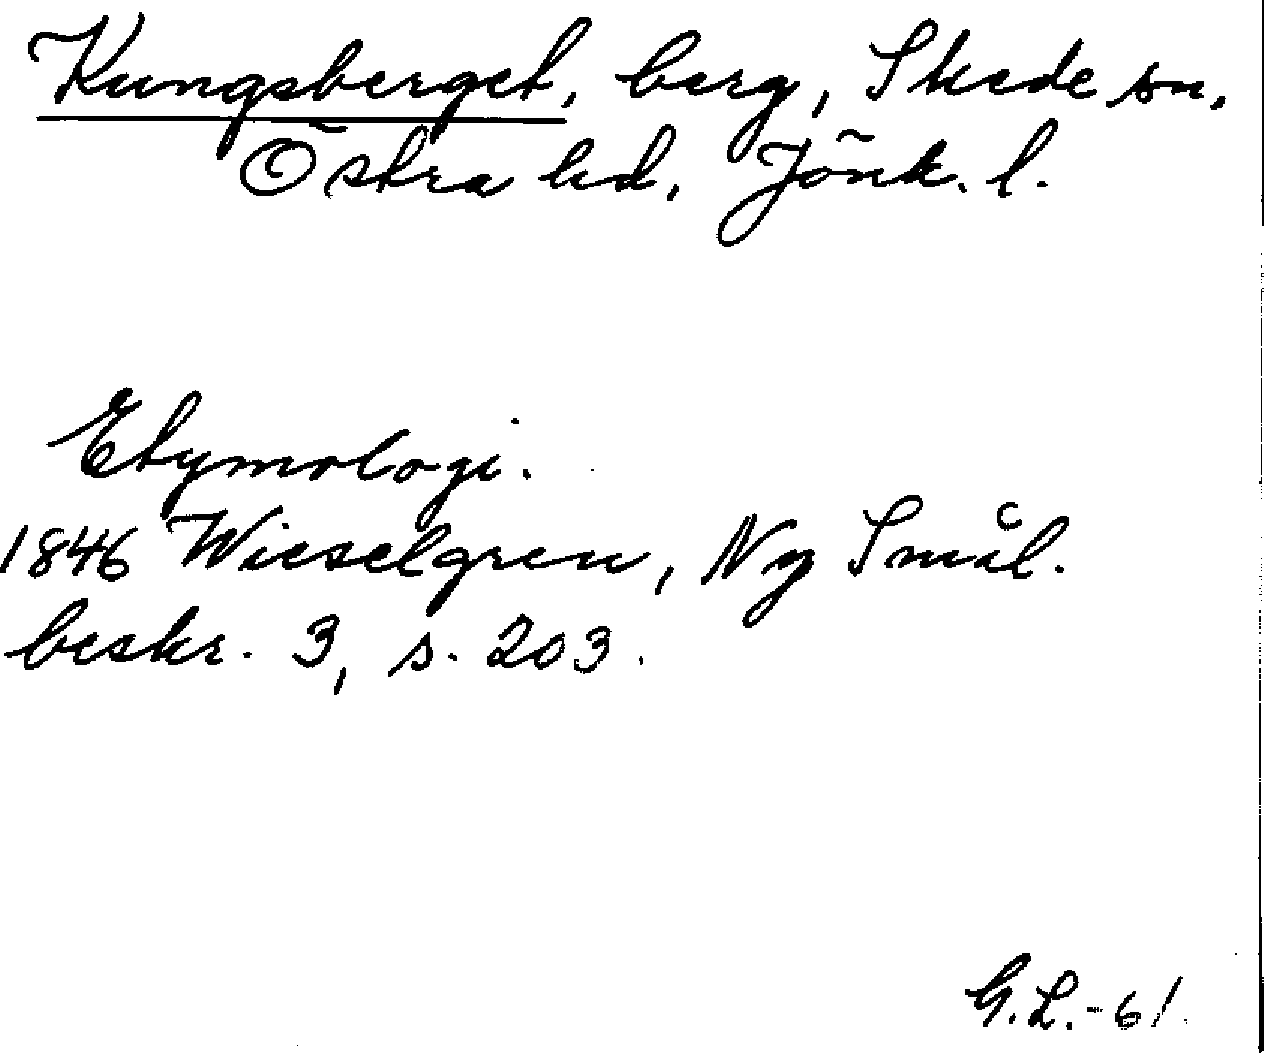 Kungsberget, berg, Skede sn,
Östra hd, Jönk. l.
Etymologi.
1846 Wieselgren, Ny Smål.
beskr. 3, s. 203.
G.L.-61.